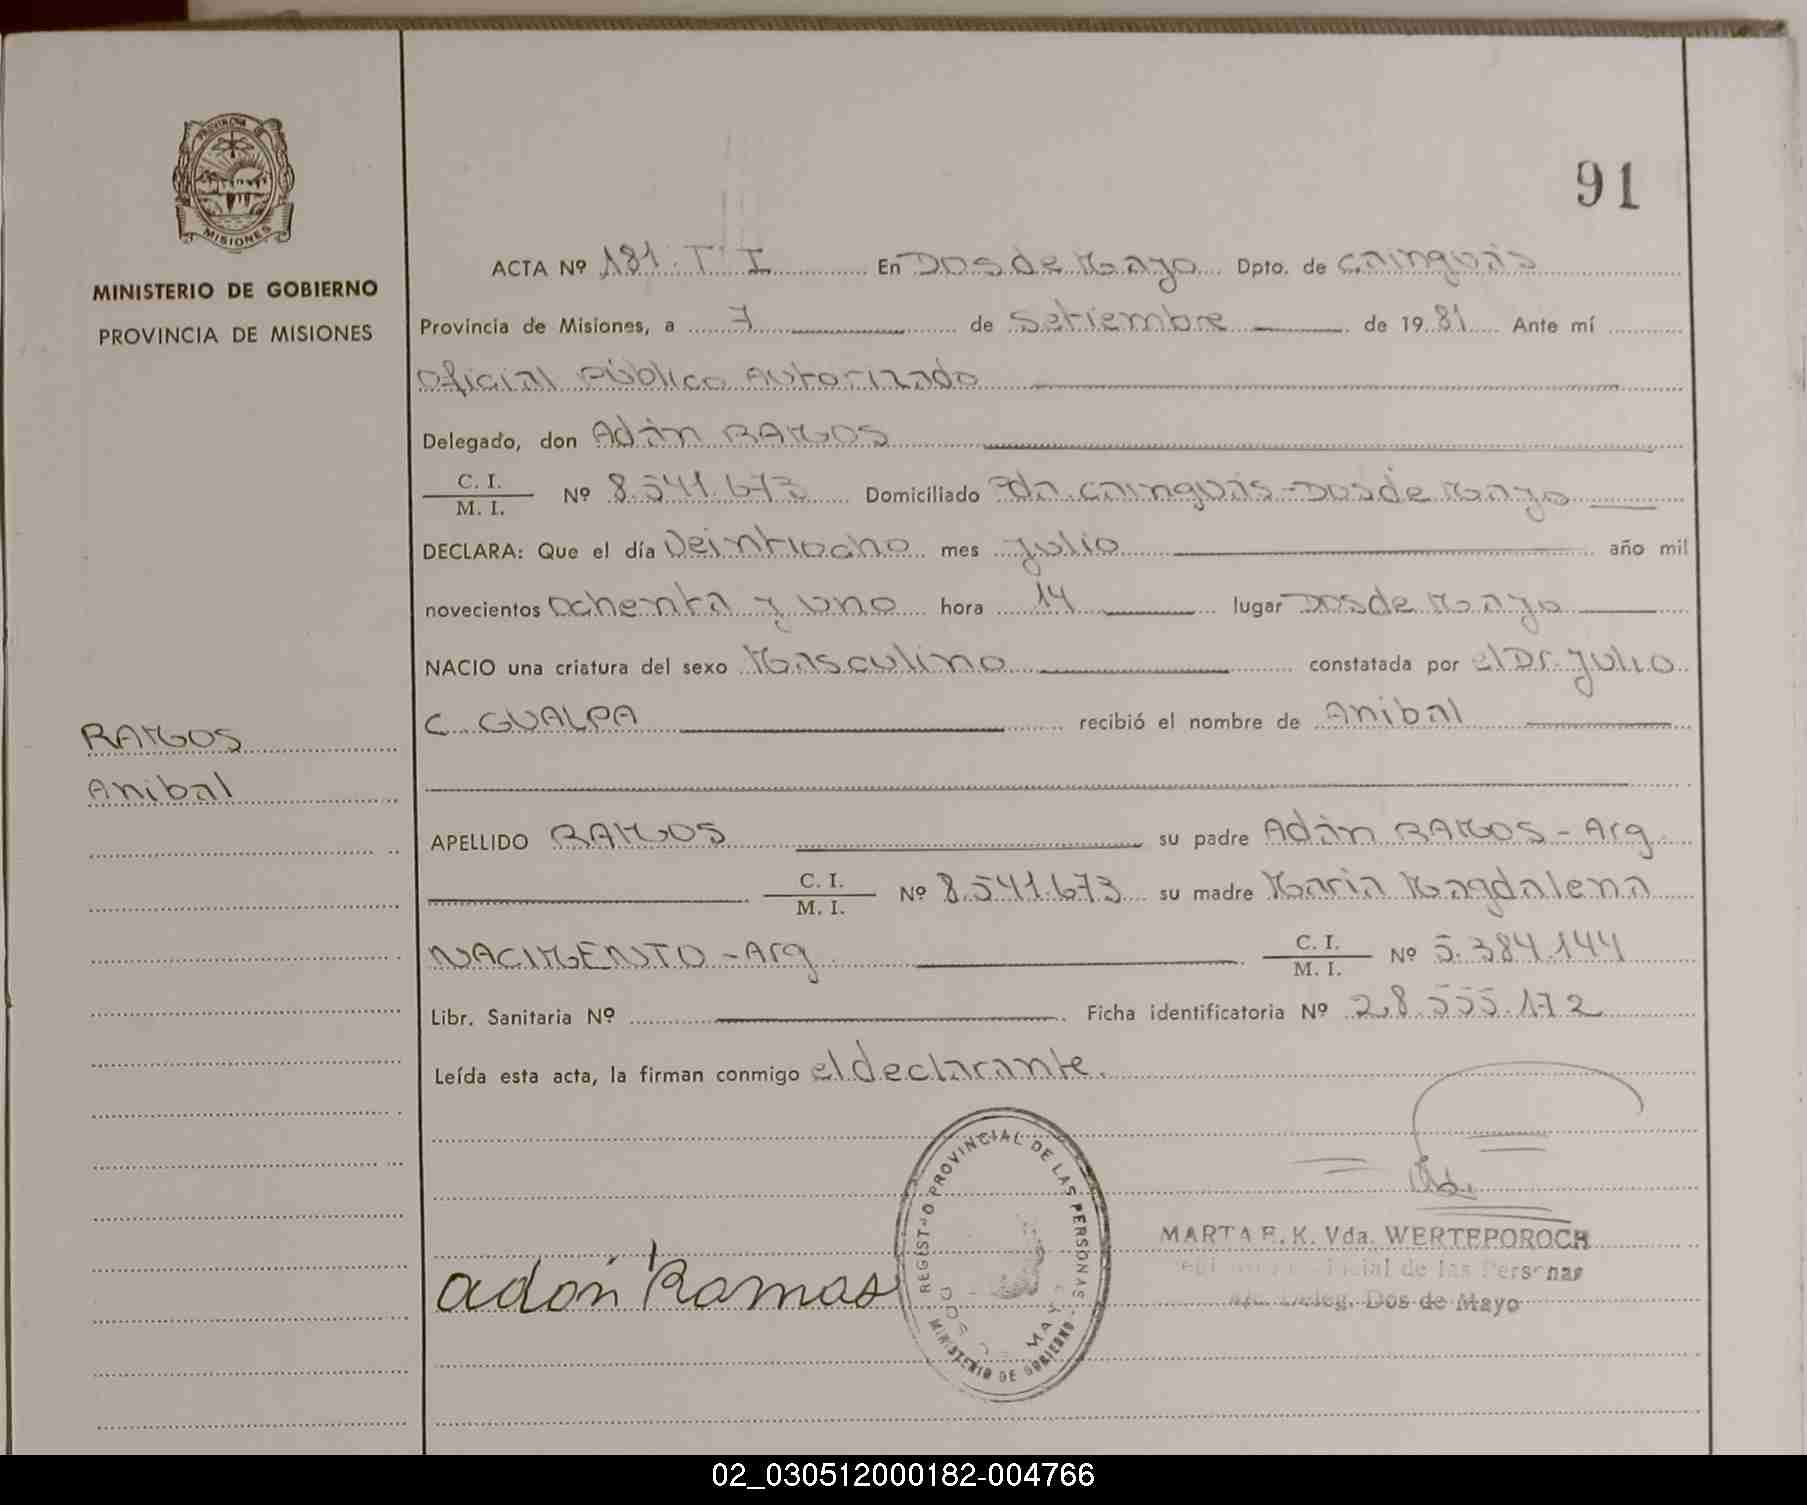 91
PROVINCIA DE
MISIONES
MINISTERIO DE GOBIERNO
PROVINCIA DE MISIONES
RAMOS
Anibal
ACTA Nº 181. T I En Dos de Mayo Dpto. de Cainguás
Provincia de Misiones, a 7 de Setiembre de 1981 Ante mí
Oficial Público Autorizado
Delegado, don Adán RAMOS
C. I.
M. I. Nº 8.541.673 Domiciliado Pda. Cainguás - Dos de Mayo
DECLARA: Que el día Veintiocho mes Julio año mil
novecientos Ochenta y uno hora 14 lugar Dos de Mayo
NACIO una criatura del sexo Masculino constatada por el Dr. Julio
C. GUALPA recibió el nombre de Anibal
APELLIDO RAMOS su padre Adán RAMOS - Arg
C. I.
M. I. Nº 8.541.673 su madre Maria Magdalena
NACIMENTO - Arg C. I.
M. I. Nº 5.384.144
Libr. Sanitaria Nº Ficha identificatoria Nº 28.555.172
Leída esta acta, la firman conmigo el declarante.
adán Ramos
REGISTRO PROVINCIAL DE LAS PERSONAS
MINISTERIO DE GOBIERNO
DOS MAY
MARTA E. K. Vda. WERTEPOROCH
de las Personas
Deleg. Dos de Mayo
02_030512000182-004766